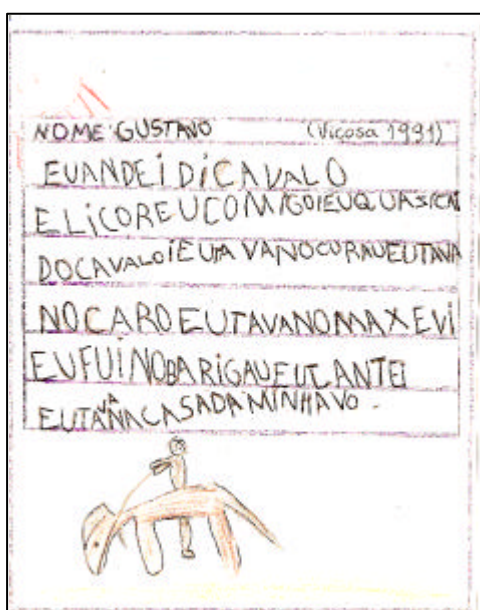 NOME GUSTAVO (Viçosa 1991)
EUANDEIDICAVALO
ELICOREUCOMIGOIEUQUASICAI
DOCAVALOIEUTAVANOCURAUEUTAVA
NOCAROEUTAVANOMAXEVI
EUFUINOBARIGAUEUTLANTEI
EUTAVANACASADAMINHAVO.